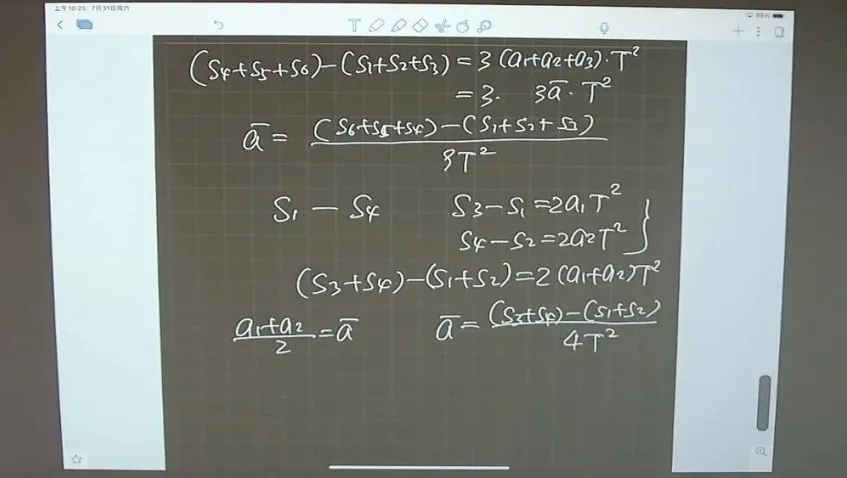 上午10:25 7月31日周六
85%
T
(S4+S5+S6)-(S1+S2+S3)=3(a1+a2+a3)·T²
=3· 3ā·T²
ā= (S6+S5+S4)-(S1+S2+S3) / 9T²
S1 — S4 S3-S1=2a1T²
S4-S2=2a2T² }
(S3+S4)-(S1+S2)=2(a1+a2)T²
a1+a2 / 2 =ā ā= (S3+S4)-(S1+S2) / 4T²